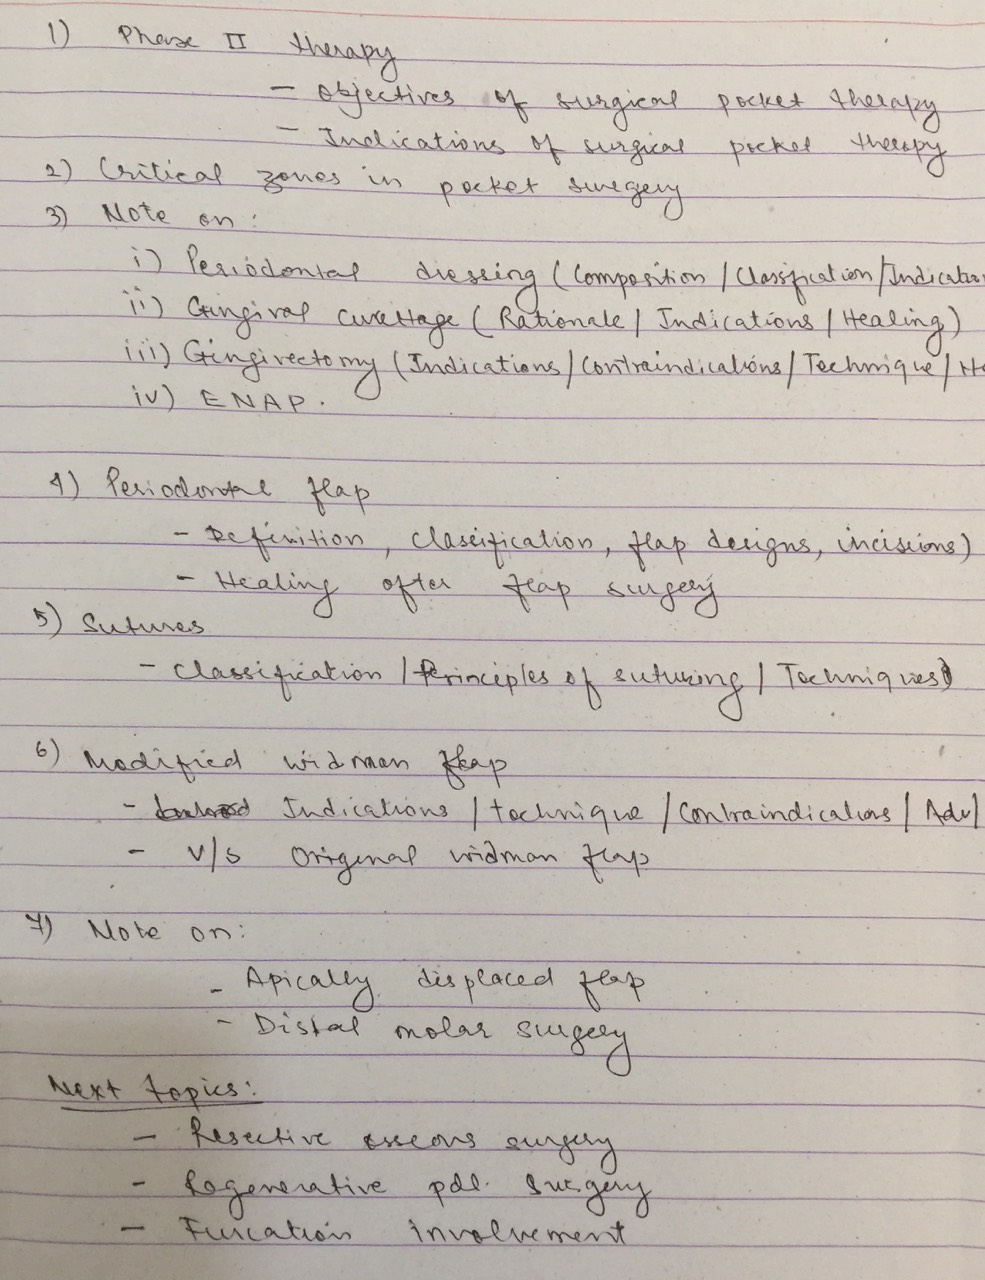 1) Phase II therapy
- Objectives of surgical pocket therapy
- Indications of surgical pocket therapy
2) Critical zones in pocket surgery
3) Note on:
i) Periodontal dressing (Composition / Classification / Indicatio
ii) Gingival curettage (Rationale / Indications / Healing)
iii) Gingivectomy (Indications / Contraindications / Technique / He
iv) ENAP.
4) Periodontal flap
- Definition, classification, flap designs, incisions)
- Healing after flap surgery
5) Sutures
- Classification / Principles of suturing / Techniques)
6) Modified widman flap
- Indications / technique / Contraindications / Adv/
- V/S Original widman flap
7) Note on:
- Apically displaced flap
- Distal molar surgery
Next topics:
- Resective osseous surgery
- Regenerative pdl. surgery
- Furcation involvement